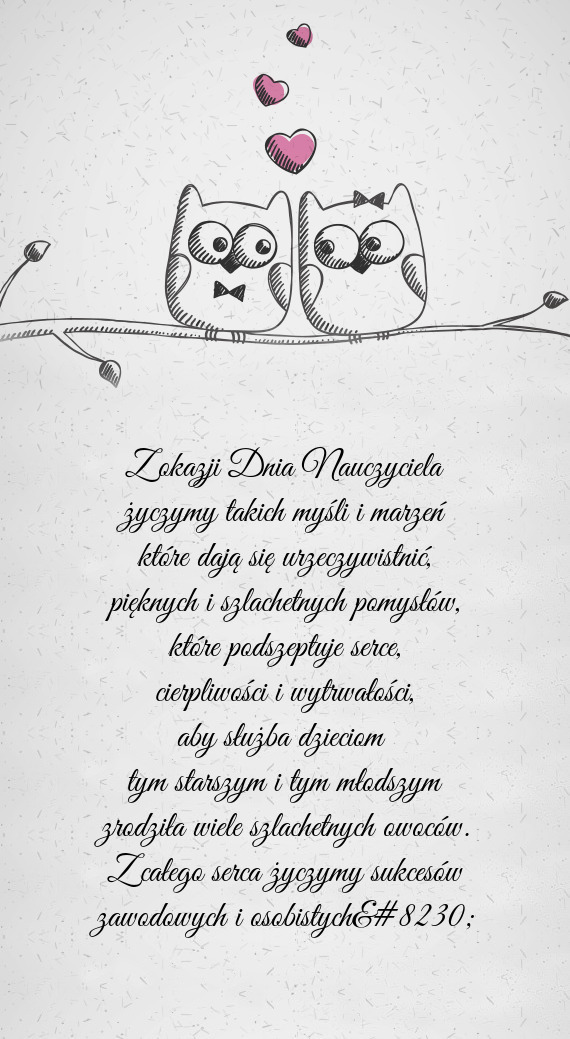 Zokazji Dnia Nauczyciela
życzymy takich myśli i marzeń
które dają się urzeczywistnić,
pięknych i szlachetnych pomysłów,
które podszeptuje serce,
cierpliwości i wytrwałości,
aby służba dzieciom
tym starszym i tym młodszym
zrodziła wiele szlachetnych owoców.
Zcałego serca życzymy sukcesów
zawodowych i osobistych&#8230;